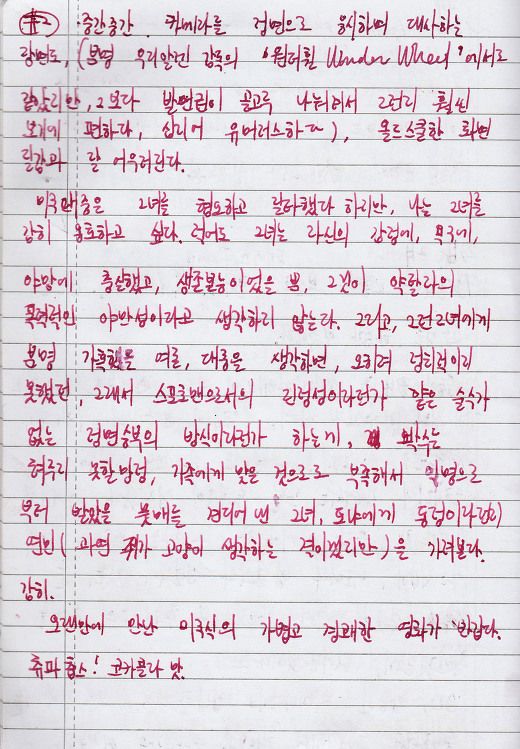 #2 · 중간중간 카메라를 정면으로 응시하며 대사하는
장면도, (분명 우리알렌 감독의 '원더휠 Wonder Wheel'에서도
같았지만, 그보다 발란림이 골고루 나눠져서 그런지 훨씬
보기에 편하다, 심지어 유머러스하다), 올드스쿨한 화면
질감과 잘 어우러진다.
미국 대중은 그녀를 혐오하고 질타했다 하지만, 나는 그녀를
감히 옹호하고 싶다. 적어도 그녀는 자신의 감정에, 욕구에,
야망에 충실했고, 생존본능이었을 뿐, 그것이 악랄하의
폭력적인 야만성이라고 생각하지 않는다. 그리고, 그런 그녀에게
분명 가혹했을 여론, 대중을 생각하면, 오히려 정치적이지
못했던, 그래서 스포츠맨으로서의 진정성이라던가 얕은 술수가
없는 정면승부의 방식이라던가 하는게, 박수는
쳐주지 못할망정, 가족에게 맞은 것으로도 부족해서 익명으로
부터 받았을 뭇매를 견디어 낸 그녀, 토냐에게 동정이라던지
연민 (과연 쥐가 고양이 생각하는 격이겠지만)을 가져본다.
감히.
오랜만에 만난 미국식의 가볍고 경쾌한 영화가 반갑다.
츄파춥스! 코카콜라 맛.